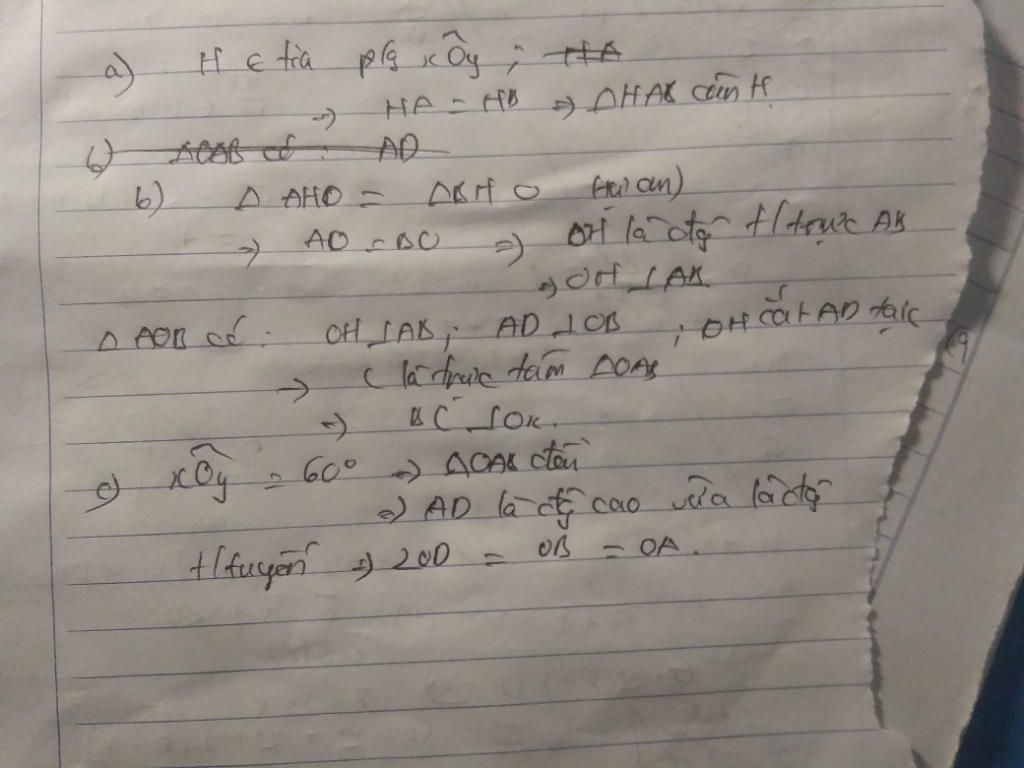 a) H ∈ tia p/g xÔy ; HA
⇒ HA = HB ⇒ ΔHAB cân H.
b) ΔOAB có : AD
b) Δ AHO = ΔBHO
⇒ AO = BO ⇒ OH là đg t/trực AB
⇒ OH ⊥ AB
Δ AOB có : OH ⊥ AB ; AD ⊥ OB ; OH cắt AD tại C
→ C là trực tâm ΔOAB
⇒ BC ⊥ Ox.
c) xÔy = 60° ⇒ ΔOAB đều
⇒ AD là đg cao vừa là đg
t/tuyến ⇒ 2OD = OB = OA.